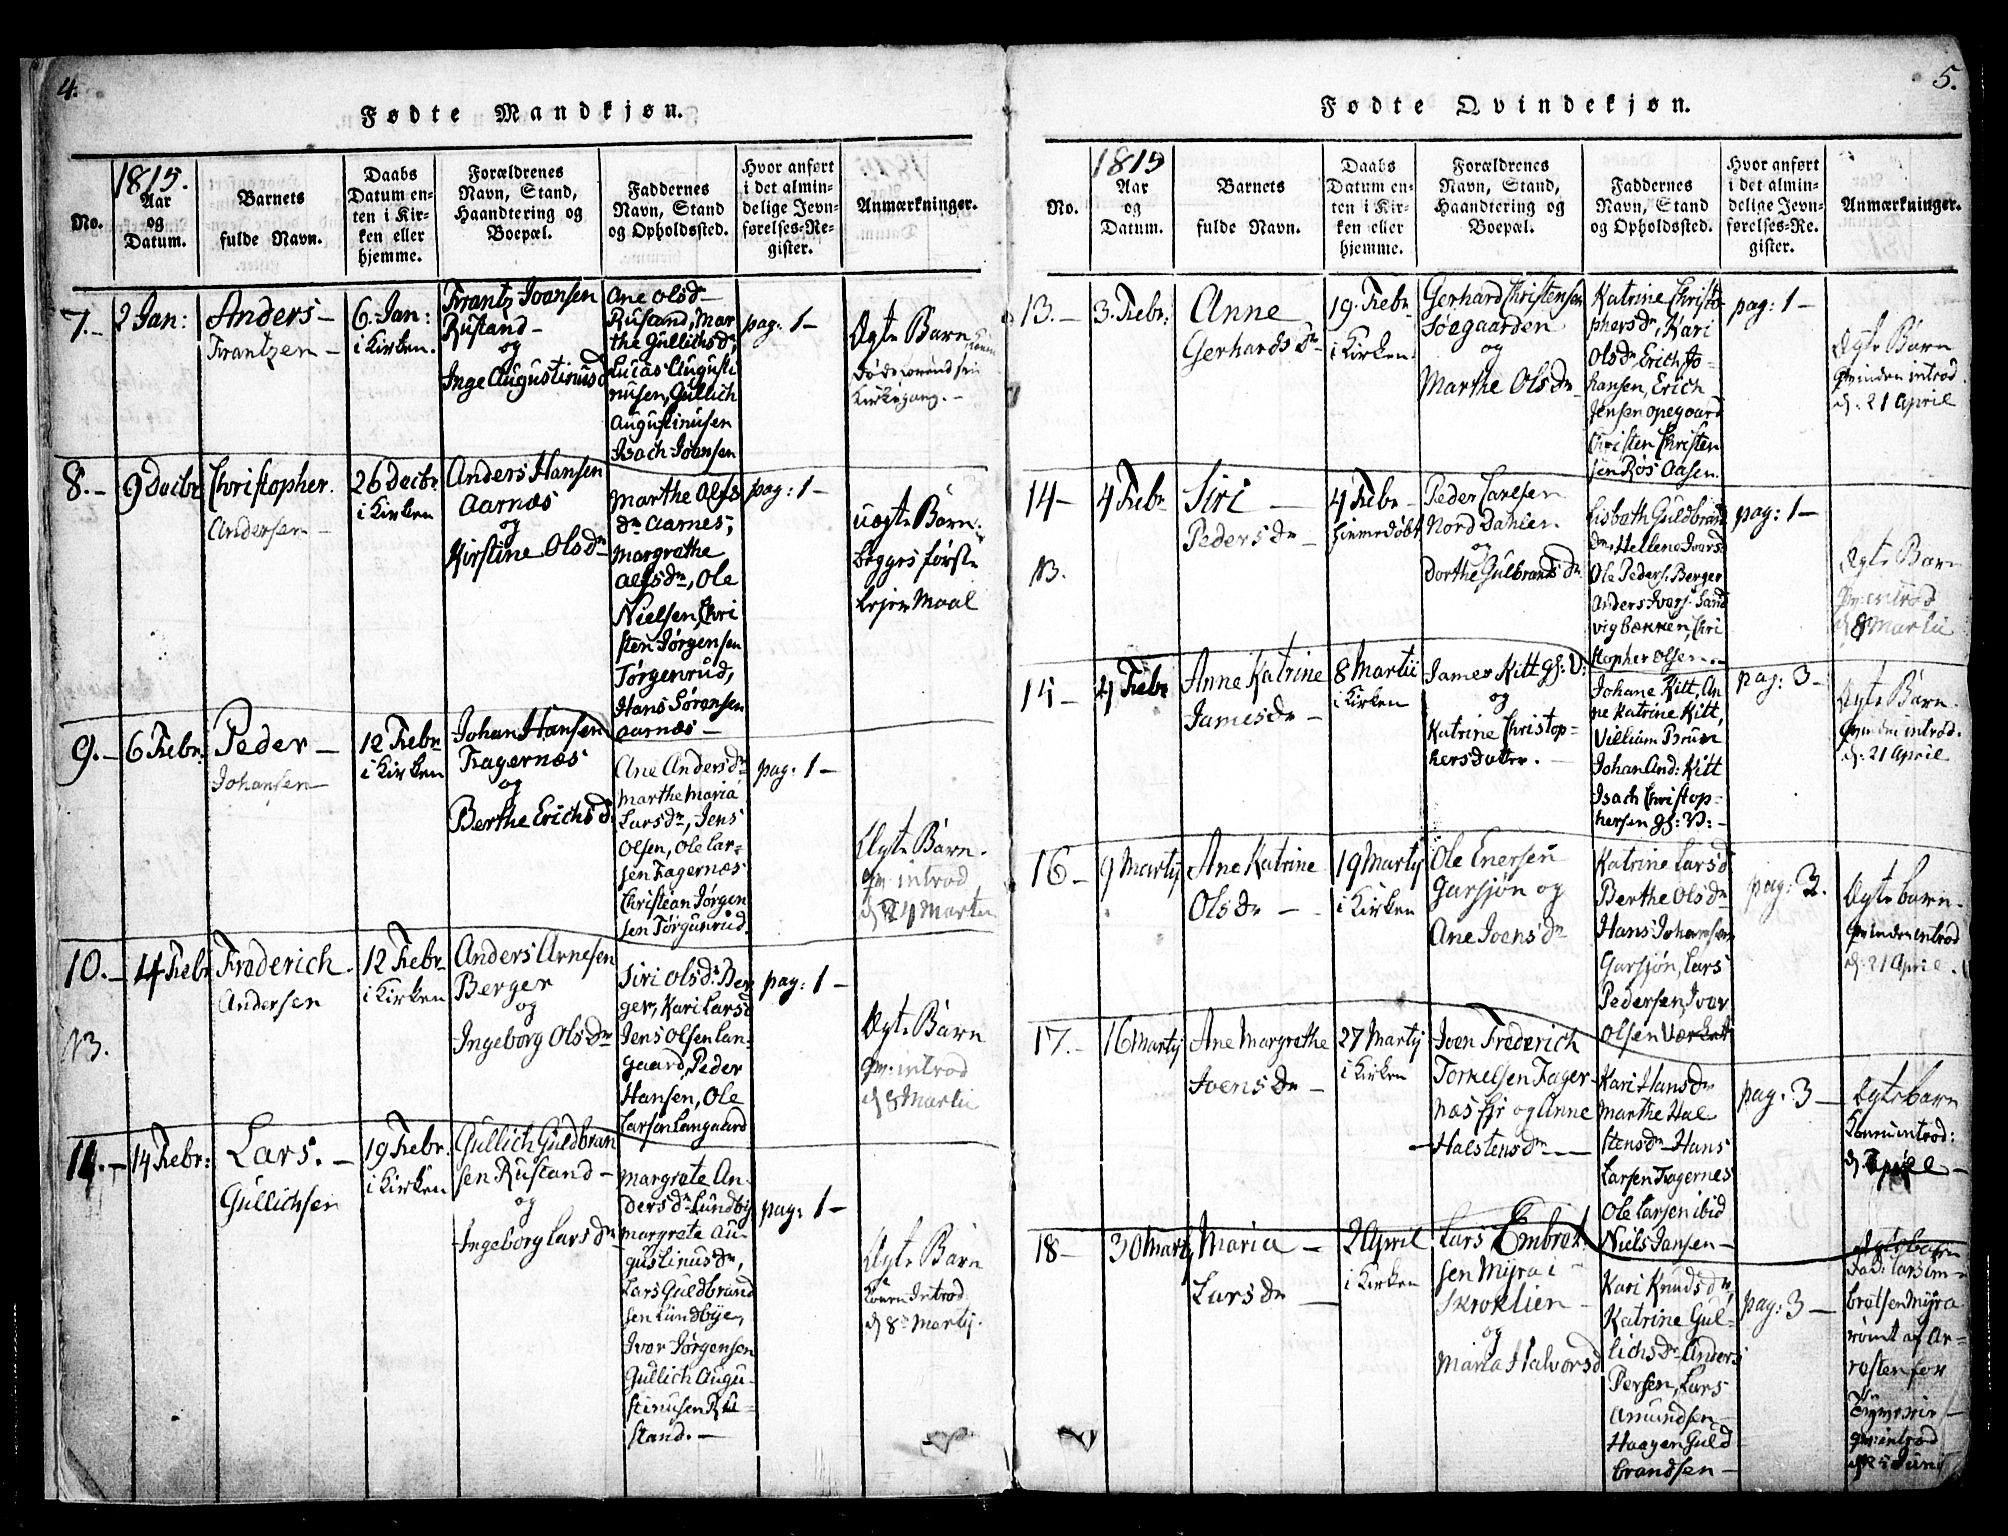 4.
Fødte Mandkjøn.
No.
1815.
Aar
og
Datum.
Barnets
fulde Navn.
Daabs
Datum en-
ten i Kir-
ken eller
hjemme.
Forældrenes
Navn, Stand,
Haandtering og
Boepæl.
Faddernes
Navn, Stand
og Opholdssted.
Hvor anført
i det almin-
delige Jevn-
førelses-Re-
gister.
Anmærkninger.
7.-
2 Jan:
Anders-
Frantzen-
6. Jan:
i Kirken.
Frantz Joansen
Rustand-
og
Inge Augustinusd
Ane Olsd-
Rustand, Mar
the Gullichsdr,
Lucas Augusti
nusen, Gullich
Augustinusen
Isach Joansen
pag: 1-
Ægte Barn
Kirkegang.-
8.-
9 Decbr
Christopher.
Andersen-
26 Decbr
i Kirken
Anders Hansen
Aarnæs
og
Kirstine Olsdr
Marthe Alfs
dr Aarnes,
Margrethe
Alfsdr, Ole
Nielsen, Chri
sten Jørgensen
Tørgenrud,
Hans Sørensen
Aarnæs-
pag: 1-
uægte Barn.
begges første
Lejer Maal
9.-
6 Febr:
Peder-
Johansen
12 Febr
i Kirken
Johan Hansen
Fagernæs
og
Berthe Erichsd.
Ane Andersdr
Marthe Maria
Larsdr, Jens
Olsen, Ole Lar-
sen Fagernæs
Christean Jørgen
sen Tørgunrud.
pag: 1-
Ægte Barn.
Qv: introd
d 24 Martii
10.-
4 Febr
NB.
Frederich.
Andersen
12 Febr
i Kirken
Anders Arnesen
Berger
og
Ingeborg Olsdr
Siri Olsdr Ber
ger, Kari Larsd
Jens Olsen Lan-
gaard, Peder
Hansen, Ole
Larsen Langaard
pag: 1-
Ægte Barn
Qv: introd
d 8 Martii
11.-
14 Febr:
Lars.-
Gullichsen
19 Febr.
i Kirken
Gullich Guldbran
sen Rustand-
og
Ingeborg Larsdr
Margrete An-
dersdr Lundby
Margrete Au-
gustinusdr,
Lars Guldbrand
sen Lundbye,
Iver Jørgensen
Gullich Augu-
stinusen Ru-
stand.-
pag: 1-
Ægte Barn
Konen Introd
d 8de Martij.
5.
Fødte Qvindekjøn.
No.
1815
Aar
og
Datum.
Barnets
fulde Navn.
Daabs
Datum en-
ten i Kir-
ken eller
hjemme.
Forældrenes
Navn, Stand,
Haandtering og
Boepæl.
Faddernes
Navn, Stand
og Opholdssted.
Hvor anført
i det almin-
delige Jevn-
førelses-Re-
gister.
Anmærkninger.
13.-
3. Febr:
Anne
Gerhardsdr-
19. Febr
i Kirken
Gerhard Christensen
Søegaarden
og
Marthe Olsdr
Katrine Christo-
phersdr, Kari
Olsdr Erich Jo-
hansen, Erich
Jensen Opegaard
Christen Christen
sen Røs Aasen.
pag: 1-
Ægte Barn
Qvinden introd.
d. 21 April
14-
NB.
4 Febr
Siri-
Pedersdr-
4 Febr-
hiemedøbt
Peder Carlsen
Nord Dahlen
og
Dorthe Gulbrandsdr
Lisbeth Guldbrand
dr, Hellene Ivarsd
Ole Peders. Berger
Anders Ivars. Sand
vigbækken, Chri
stopher Olsen.-
pag: 1-
Ægte Barn
Qv: introd
d 8 Martii
15-
4 Febr
Anne Katrine
Jamesdr-
8 Martii
i Kirken
James Kitt gs: V:
og
Katrine Christop-
hersdatter.-
Johane Kitt, An
ne Katrine Kitt,
Villiam Brun
Johan And: Kitt
Isach Christop-
hersen gs: V:-
pag: 3-
Ægte Barn
Qvinden introd.
d. 21 April
16-
9 Martij
Ane Katrine
Olsdr-
19 Martij
i Kirken
Ole Enersen
Garsjøn og
Ane Joensdr
Katrine Larsd
Berthe Olsdr
Hans Johannesen
Garsjøn, Lars
Pedersen, Iver
Olsen
pag: 2.
Ægte barn.
Qvinden introd
d. 21 April.
17.-
16 Martij
Ane Margrethe
Joensdr-
27 Martij
i Kirken
Joen Frederich
Torkelsen Fager-
næs Ejr og Anne
Halstensdr-
Kari Hansdr
Marthe Hal
stensdr Hans
Larsen Fagernes
Ole Larsen ibid
Niels Jansen-
pag: 3-
Ægte barn
Konen introd:
18-
30 Martij
Maria-
Larsdr-
2 April
i Kirken
Lars Embret
sen Myra i
Skroklien-
og
Maria Halvorsd
Kari Knudsdr,
Katrine Gul-
lichsdr Anders
Persen, Lars
Amundsen-
Haagen Guld
brandsen-
pag: 3-
Ægte barn
Fad: Lars Em-
bretsen Myra
rømt af Ar-
resten for
Tyverie-
Qv: introd